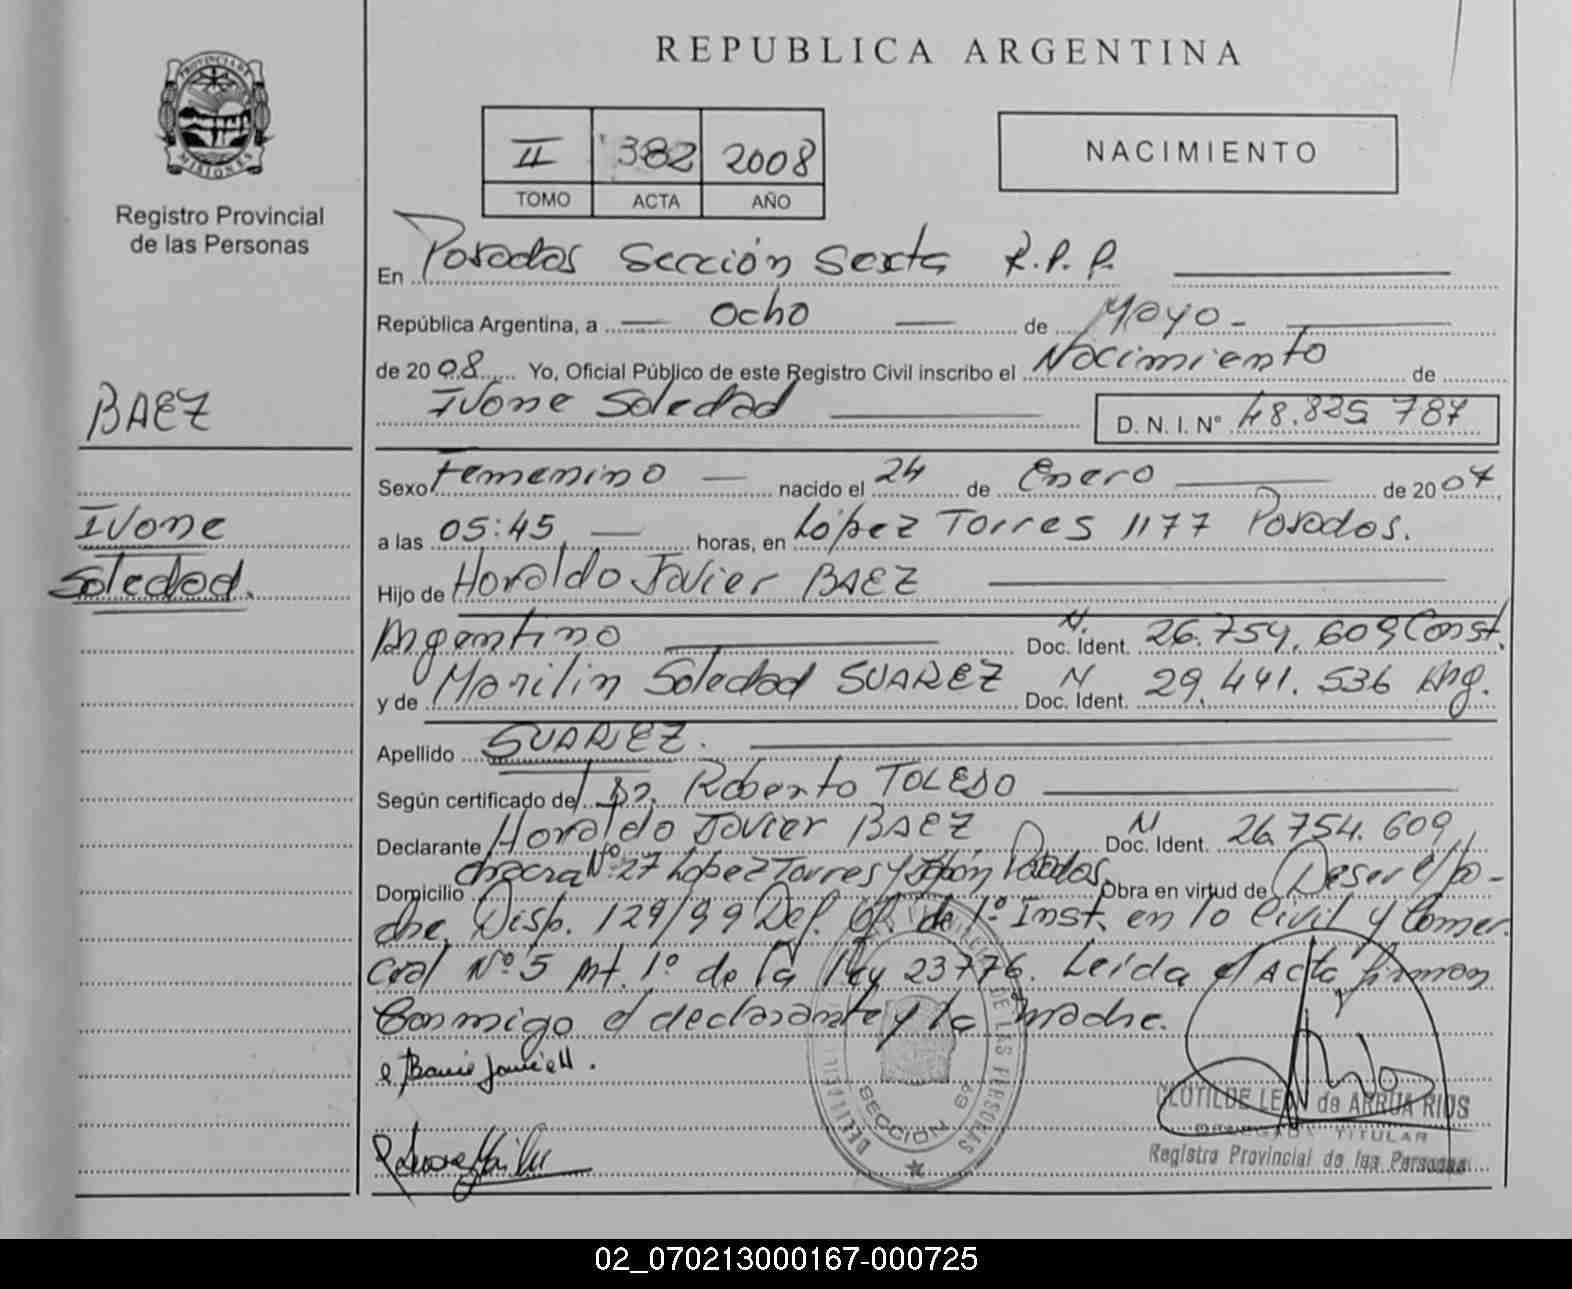 REPUBLICA ARGENTINA
PROVINCIA DE MISIONES
Registro Provincial
de las Personas
II 382 2008
TOMO ACTA AÑO
NACIMIENTO
En Posadas Sección Sexta R.P.P.
República Argentina, a ocho de Mayo
de 2008 Yo, Oficial Público de este Registro Civil inscribo el Nacimiento de
Ivone Soledad D. N. I. N° 48.825 787
BAEZ
Ivone
Soledad.
Sexo Femenino nacido el 24 de Enero de 2007
a las 05:45 horas, en López Torres 1177 Posadas.
Hijo de Horaldo Javier BAEZ
Argentino N. Doc. Ident. 26.754.609 Const.
y de Marilin Soledad SUAREZ N Doc. Ident. 29.441.536 Arg.
Apellido SUAREZ.
Según certificado del Dr. Roberto TOLEDO
Declarante Horaldo Javier BAEZ N Doc. Ident. 26.754.609
Domicilio chacra N° 27 López Torres y Japón Posadas. Obra en virtud de
Disp. 129/99 Def. Of. de 1° Inst. en lo Civil y Comer.
cial N° 5 Art. 1° de la ley 23776. Leída el Acta, firman
Conmigo el declarante y la madre.
SECCION 6ª
DE LAS PERSONAS
CLOTILDE LEON de ARRUA RIOS
DELEGADA TITULAR
Registro Provincial de las Personas
02_070213000167-000725